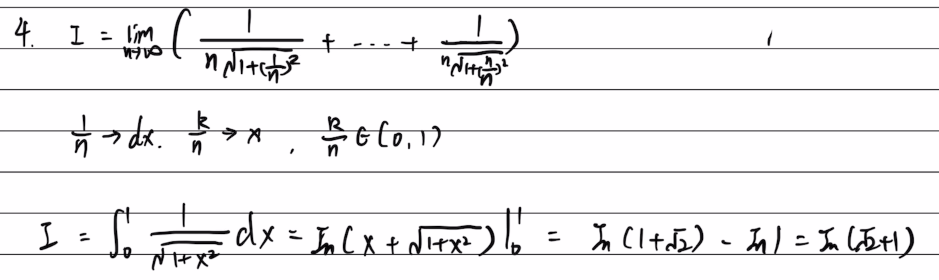 4. I = lim_{n→∞} ( \frac{1}{n\sqrt{1+(\frac{1}{n})^2}} + ---- + \frac{1}{n\sqrt{1+(\frac{n}{n})^2}} )
\frac{1}{n} → dx. \frac{k}{n} → x , \frac{k}{n} ∈ (0,1)
I = ∫_0^1 \frac{1}{\sqrt{1+x^2}} dx = ln(x + \sqrt{1+x^2})|_0^1 = ln(1+√2) - ln1 = ln(√2+1)